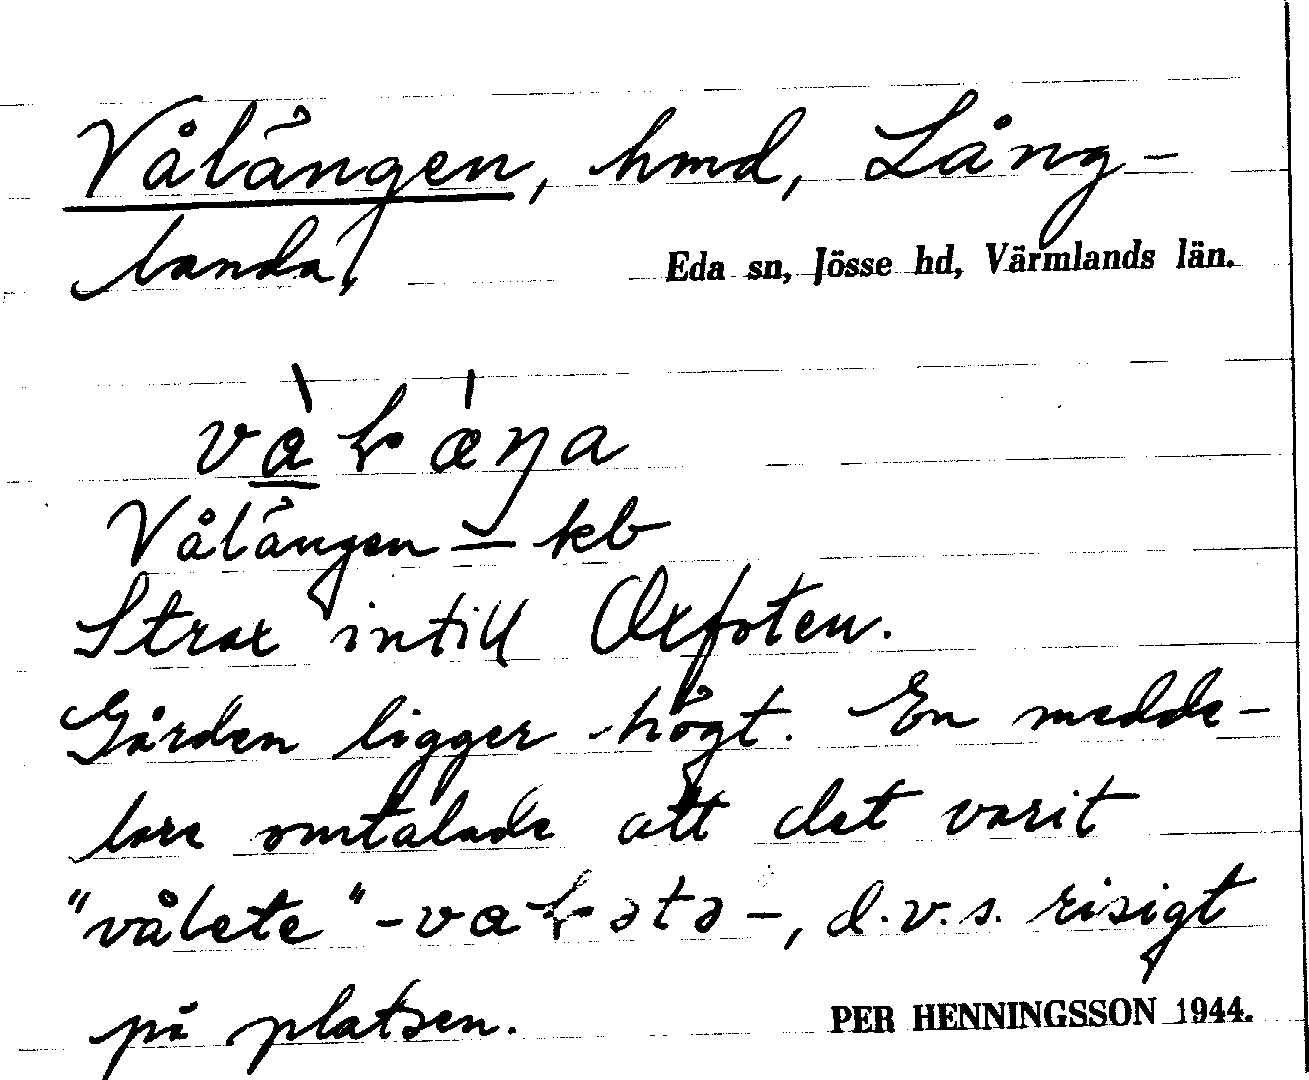 Vålängen, hmd, Lång-
landa,
Eda sn, Jösse hd, Värmlands län.
Vålängen – kb
Strax intill Oxfoten.
Gården ligger högt. En medde-
lare omtalade att det varit
"vålete" – –, d.v.s. risigt
på platsen.
PER HENNINGSSON 1944.